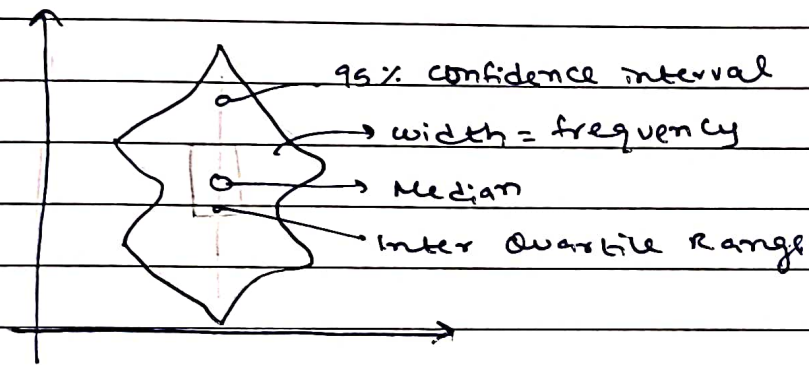 95% confidence interval
width = frequency
Median
Inter Quartile Range